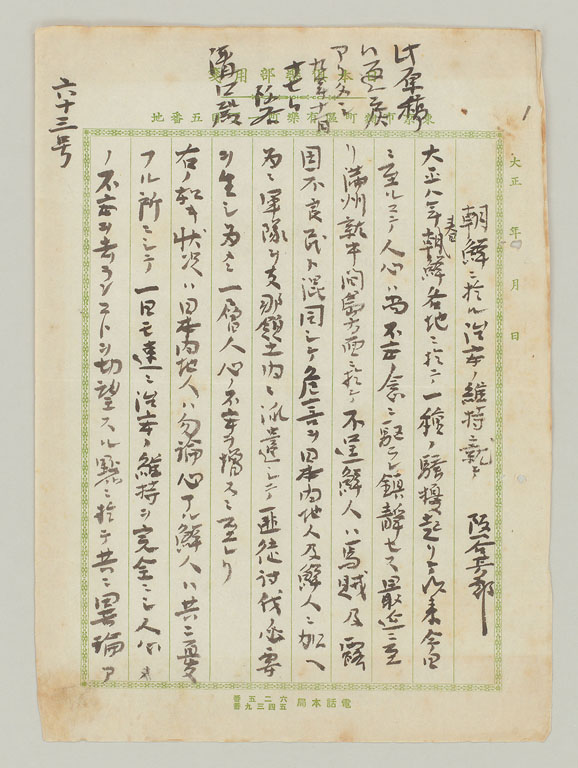 大正 年 月 日
朝鮮ニ於ル治安ノ維持ニ就テ
阪谷芳郎
大正八年春朝鮮各地ニ於テ一種ノ騒擾起リテ以来今日
ニ至ルマテ人心ハ尚不安ノ念ニ駆ラレ鎮静セス最近ニ至
リ満州就中間島方面ニ於テ不逞鮮人ハ馬賊及露
国不良民ト混同シテ危害ヲ日本内地人及鮮人ニ加ヘ
為ニ軍隊ヲ支那領土内ニ派遣シテ匪徒討伐ノ必要
ヲ生シ為メニ一層人心ノ不安ヲ増スニ至レリ
右ノ如キ状況ハ日本内地人ハ勿論心アル鮮人ハ共ニ憂
フル所ニシテ一日モ速ニ治安ノ維持ヲ完全ニシ人心
ノ不安ヲ去ランコトヲ切望スル点ニ於テ共ニ異論ア
此原稿
六十三号
電話本局
六二五番
五四三九番